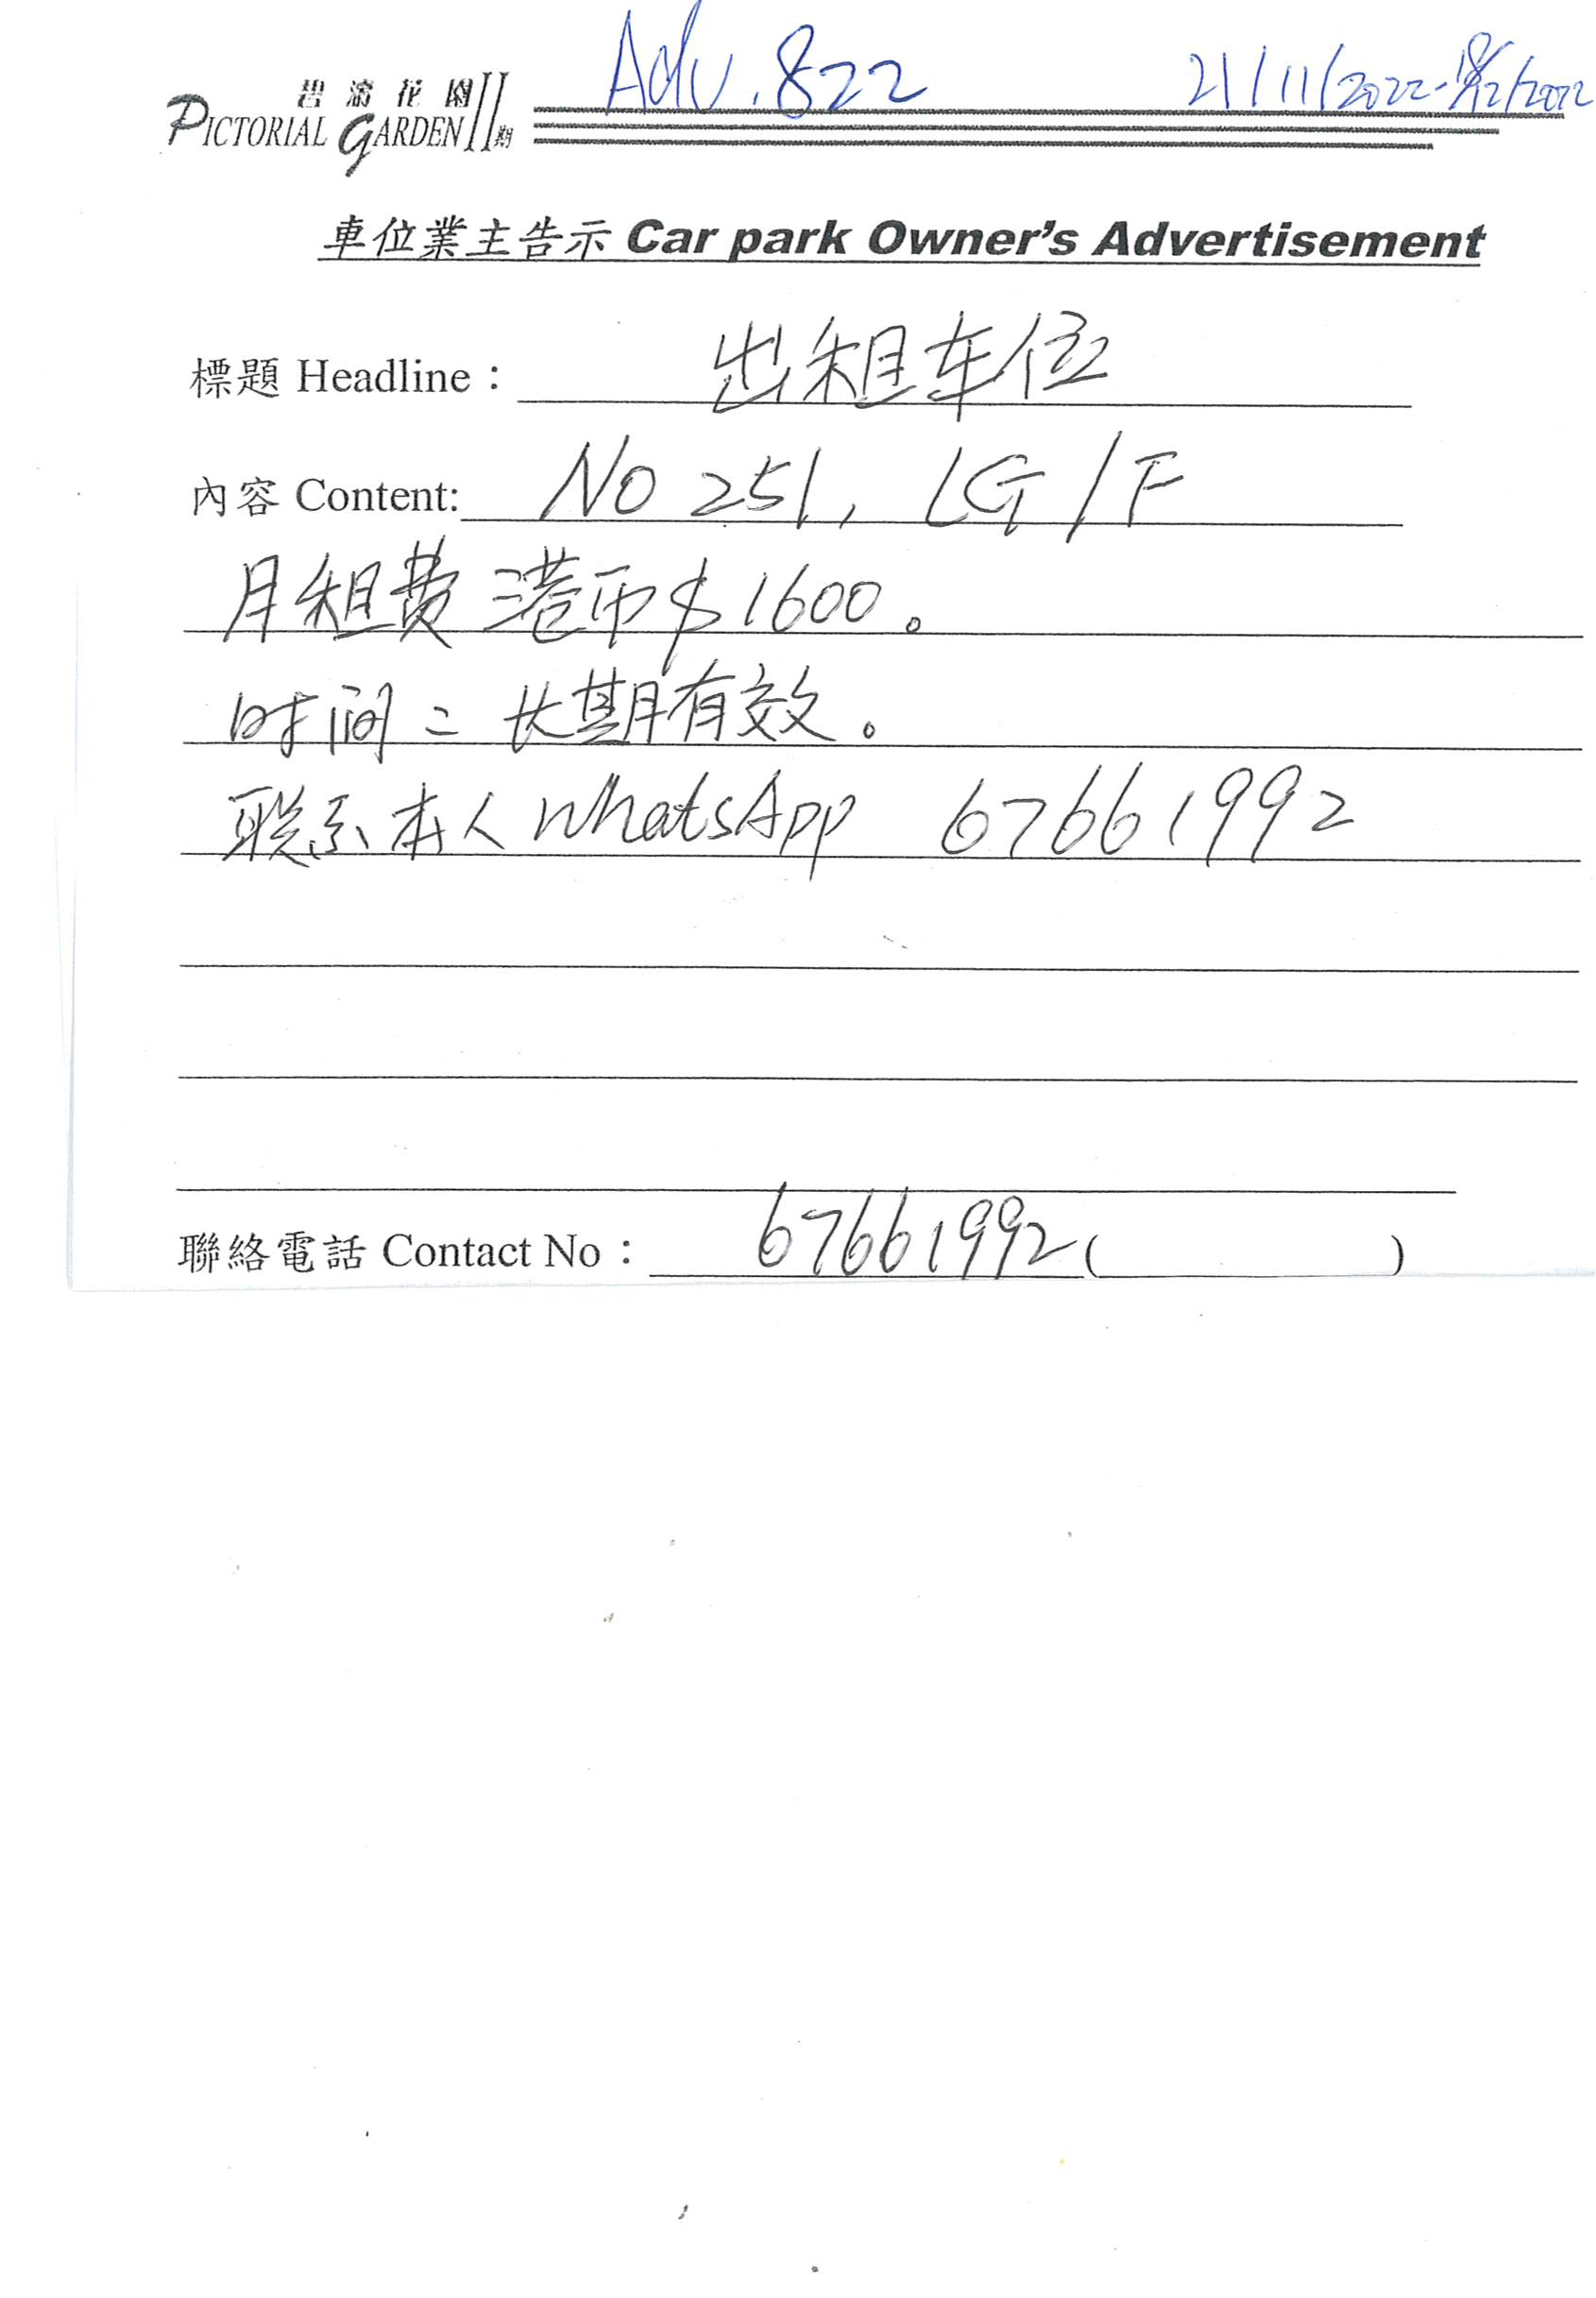 Adv. 822
21/11/2022-18/12/2022
碧濤花園II期
PICTORIAL GARDEN
車位業主告示 Car park Owner's Advertisement
標題 Headline：出租车位
內容 Content: No 251, LG/F
月租费 港币$1600。
时间：长期有效。
联系本人 WhatsApp 67661992
聯絡電話 Contact No：67661992 ( )